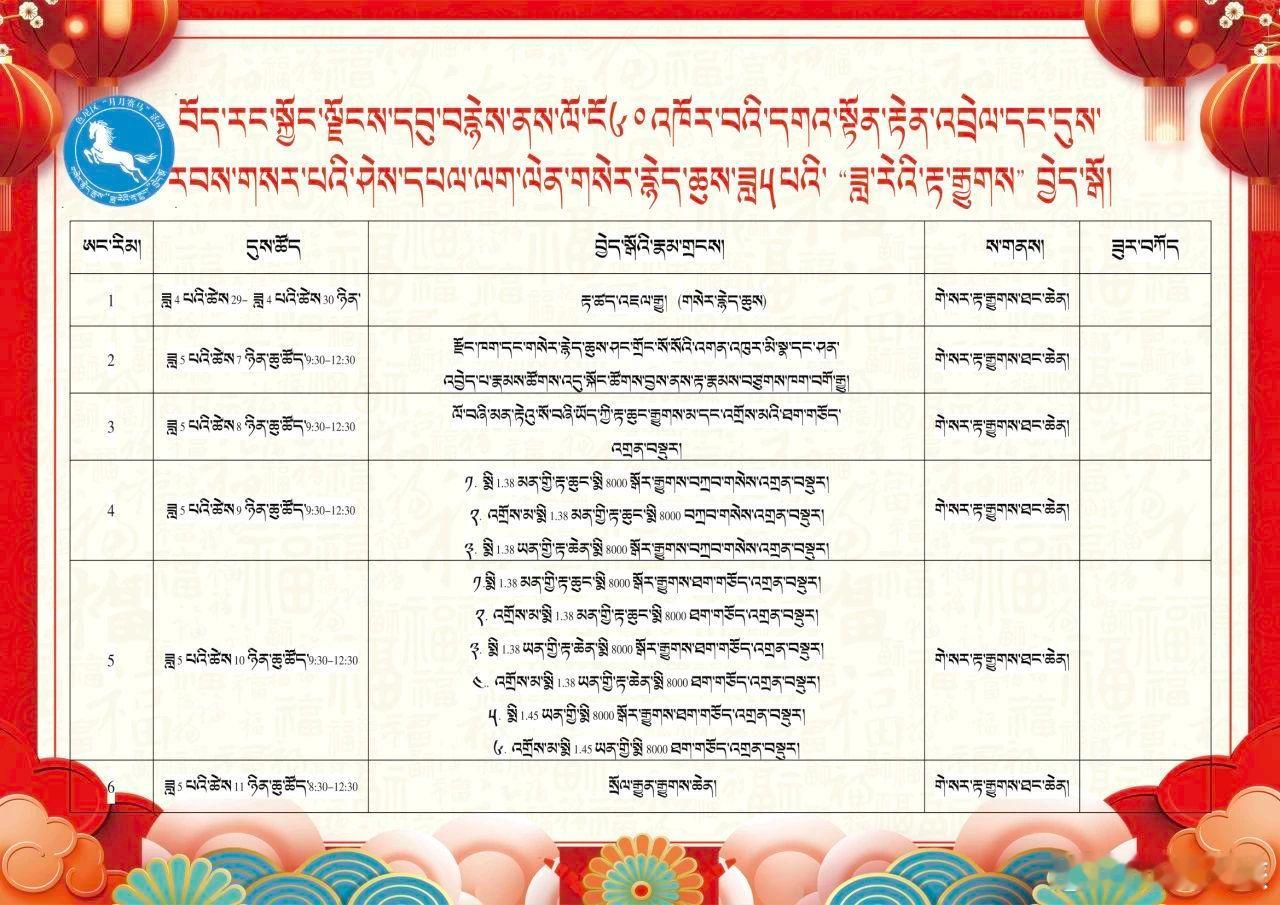 色尼区“月月赛马”活动
བོད་རང་སྐྱོང་ལྗོངས་དབུ་བརྙེས་ནས་ལོ་ངོ༦༠འཁོར་བའི་དགའ་སྟོན་རྟེན་འབྲེལ་དང་དུས་
རབས་གསར་པའི་ཤེས་དཔལ་ལག་ལེན་གསེར་རྙེད་ཆུས་ཟླ༥པའི་ “ཟླ་རེའི་རྟ་རྒྱུགས” བྱེད་སྒོ།
ཨང་རིམ། དུས་ཚོད བྱེད་སྒོའི་རྣམ་གྲངས། ས་གནས། ཟུར་བཀོད
1 ཟླ 4 པའི་ཚེས 29– ཟླ 4 པའི་ཚེས 30 ཉིན་ རྟ་ཚད་འཇལ་རྒྱུ། (གསེར་རྙེད་ཆུས) གེ་སར་རྟ་རྒྱུགས་ཐང་ཆེན།
2 ཟླ 5 པའི་ཚེས 7 ཉིན་ཆུ་ཚོད་9:30–12:30 རྫོང་ཁག་དང་གསེར་རྙེད་ཆུས་ཤང་གྲོང་སོ་སོའི་འགན་འཁུར་མི་སྣ་དང་ཤན་ གེ་སར་རྟ་རྒྱུགས་ཐང་ཆེན།
འབྱེད་པ་རྣམས་ཚོགས་འདུ་སྐོང་ཚོགས་བྱས་ནས་རྟ་རྣམས་བཙུགས་ཁག་བགོ་རྒྱུ།
3 ཟླ 5 པའི་ཚེས 8 ཉིན་ཆུ་ཚོད་9:30–12:30 ལོ་བཞི་མན་རྟེའུ་སོ་བཞི་ཡོད་ཀྱི་རྟ་ཆུང་རྒྱུགས་མ་དང་འགྲོས་མའི་ཐག་གཅོད་ གེ་སར་རྟ་རྒྱུགས་ཐང་ཆེན།
འགྲན་བསྡུར།
4 ཟླ 5 པའི་ཚེས 9 ཉིན་ཆུ་ཚོད་9:30–12:30 ༡. སྨི 1.38 མན་གྱི་རྟ་ཆུང་སྨི 8000 སྐོར་རྒྱུགས་བཀྲབ་གསེས་འགྲན་བསྡུར། གེ་སར་རྟ་རྒྱུགས་ཐང་ཆེན།
༢. འགྲོས་མ་སྨི 1.38 མན་གྱི་རྟ་ཆུང་སྨི 8000 བཀྲབ་གསེས་འགྲན་བསྡུར།
༣. སྨི 1.38 ཡན་གྱི་རྟ་ཆེན་སྨི 8000 སྐོར་རྒྱུགས་བཀྲབ་གསེས་འགྲན་བསྡུར།
5 ཟླ 5 པའི་ཚེས 10 ཉིན་ཆུ་ཚོད་9:30–12:30 ༡.སྨི 1.38 མན་གྱི་རྟ་ཆུང་སྨི 8000 སྐོར་རྒྱུགས་ཐག་གཅོད་འགྲན་བསྡུར། གེ་སར་རྟ་རྒྱུགས་ཐང་ཆེན།
༢. འགྲོས་མ་སྨི 1.38 མན་གྱི་རྟ་ཆུང་སྨི 8000 ཐག་གཅོད་འགྲན་བསྡུར།
༣. སྨི 1.38 ཡན་གྱི་རྟ་ཆེན་སྨི 8000 སྐོར་རྒྱུགས་ཐག་གཅོད་འགྲན་བསྡུར།
༤.. འགྲོས་མ་སྨི 1.38 ཡན་གྱི་རྟ་ཆེན་སྨི 8000 ཐག་གཅོད་འགྲན་བསྡུར།
༥. སྨི 1.45 ཡན་གྱི་སྨི 8000 སྐོར་རྒྱུགས་ཐག་གཅོད་འགྲན་བསྡུར།
༦. འགྲོས་མ་སྨི 1.45 ཡན་གྱི་སྨི 8000 ཐག་གཅོད་འགྲན་བསྡུར།
6 ཟླ 5 པའི་ཚེས 11 ཉིན་ཆུ་ཚོད་8:30–12:30 སྲོལ་རྒྱུན་རྒྱུགས་ཆེན། གེ་སར་རྟ་རྒྱུགས་ཐང་ཆེན།